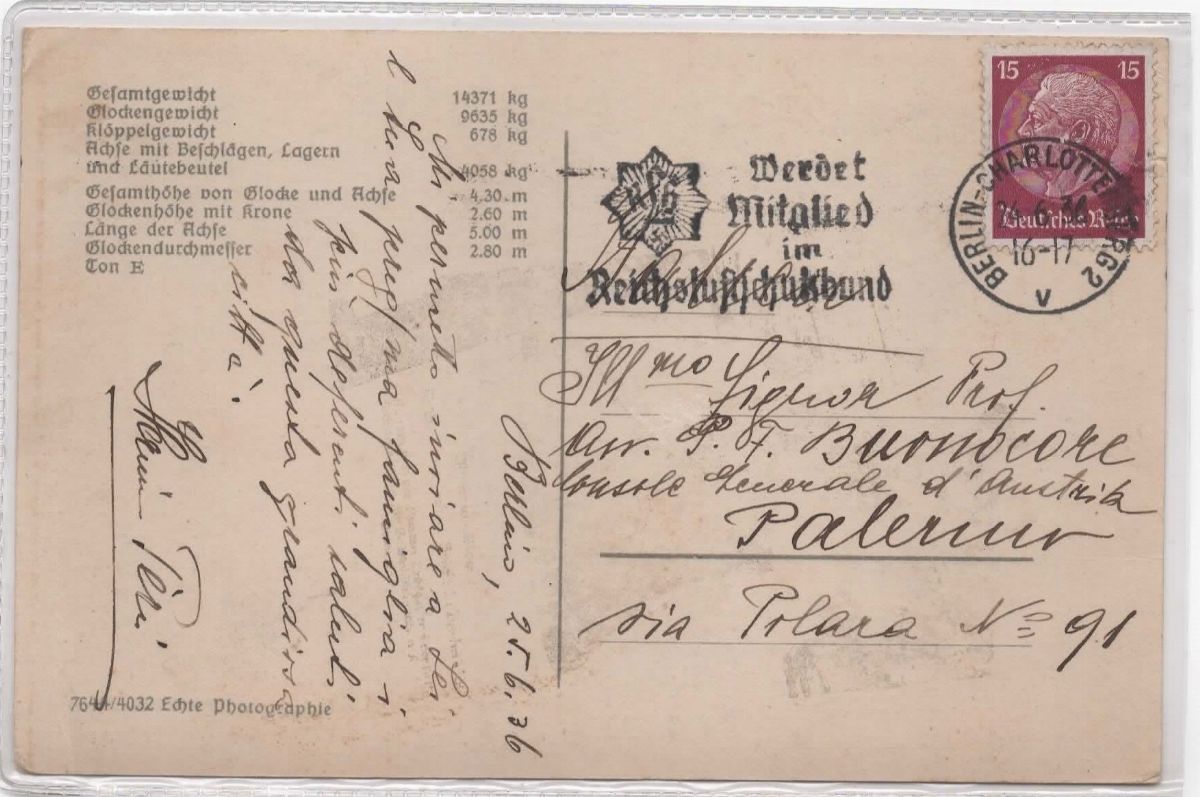 Gesamtgewicht 14371 kg
Glockengewicht 9635 kg
Klöppelgewicht 678 kg
Achse mit Beschlägen, Lagern
und Läutebeutel 4058 kg
Gesamthöhe von Glocke und Achse 4.30 m
Glockenhöhe mit Krone 2.60 m
Länge der Achse 5.00 m
Glockendurchmesser 2.80 m
Ton E
7644/4032 Echte Photographie
Berlin, 25.6.36
Mi permetto inviare a Lei
e Sua preg/ma famiglia i
più deferenti saluti
da questa grandissa
città.
RLB
Werdet
Mitglied
im
Reichsluftschutzbund
15 15
Deutsches Reich
BERLIN-CHARLOTTENBURG 2
16-17
V
Ill mo Signor Prof.
Avv. P. F. Buonocore
Console Generale d'Austria
Palermo
via Polara No 91